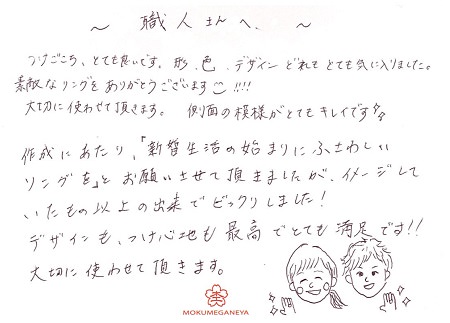 ～ 職人さんへ. ～
つけごこち、とても良いです。形、色、デザイン どれも とても気に入りました。
素敵なリングを ありがとうございます!!!!
大切に使わせて頂きます。 側面の模様がとてもキレイです
作成にあたり、『新婚生活の始まりにふさわしい
リングを』と お願いさせて頂きましたが、イメージして
いたもの以上の出来でビックリしました!
デザインも、つけ心地も最高でとても満足です!!
大切に使わせて頂きます。
MOKUMEGANEYA